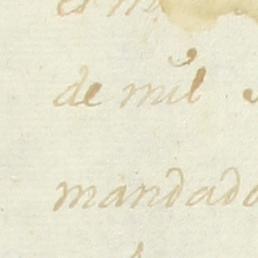 de mil
mandado